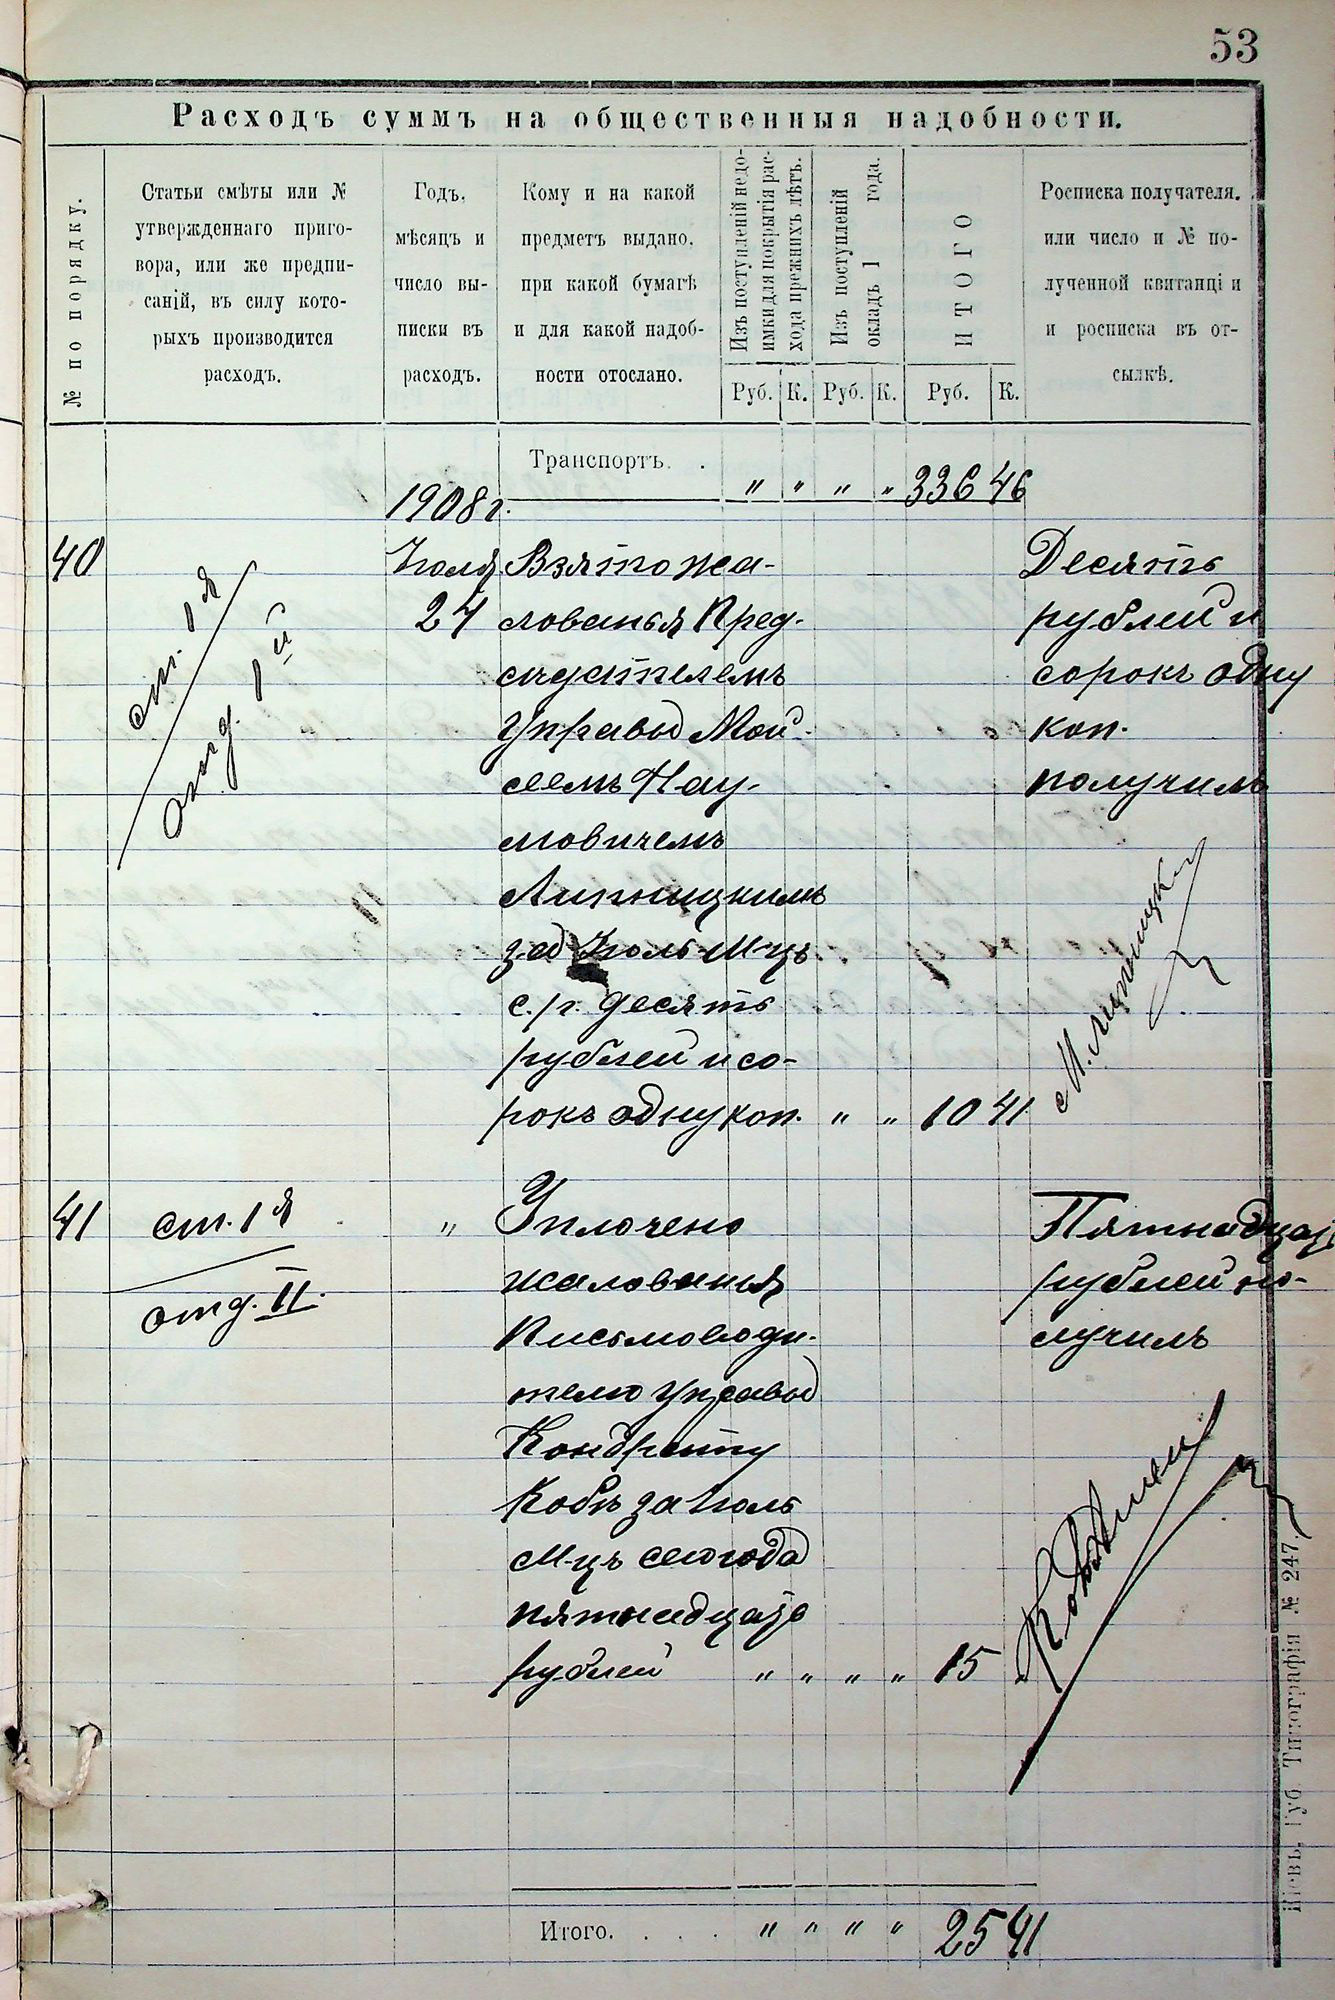 53
Расходъ суммъ на общественныя надобности.
№ по порядку.
Статьи смѣты или №
утвержденнаго приго-
вора, или же предпи-
саній, въ силу кото-
рыхъ производится
расходъ.
Годъ,
мѣсяцъ и
число вы-
писки въ
расходъ.
Кому и на какой
предметъ выдано,
при какой бумагѣ
и для какой надоб-
ности отослано.
Изъ поступленій недо-
имки для покрытія рас-
хода прежнихъ лѣтъ.
Изъ поступленій
окладъ 1 года.
ИТОГО
Росписка получателя,
или число и № по-
лученной квитанці и
и росписка въ от-
сылкѣ.
Руб. К. Руб. К. Руб. К.
Транспортъ. .
" " " " 336 46
1908 г.
40
ст. 1я
отд. 1й
Іюля
24
Взято жа-
лованья Пред-
сѣдателемъ
Управы Мой-
сеемъ Нау-
мовичемъ
Липницкимъ
за Іюль М-цъ
с./г. десять
рублей и со-
рокъ одну коп. " " 10 41
Десять
рублей и
сорокъ одну
коп.
получилъ
М. Липницкій
41
ст. 1я
отд. II.
"
Уплочено
жалованья
Письмоводи-
телю управы
Кондрату
Кобѣ за Іюль
М-цъ сего года
пятнадцать
рублей " " " " 15
Пятнадцать
рублей по-
лучилъ
Итого. . . . " " " " 25 41
Кіевъ, Губ. Типографія № 247.